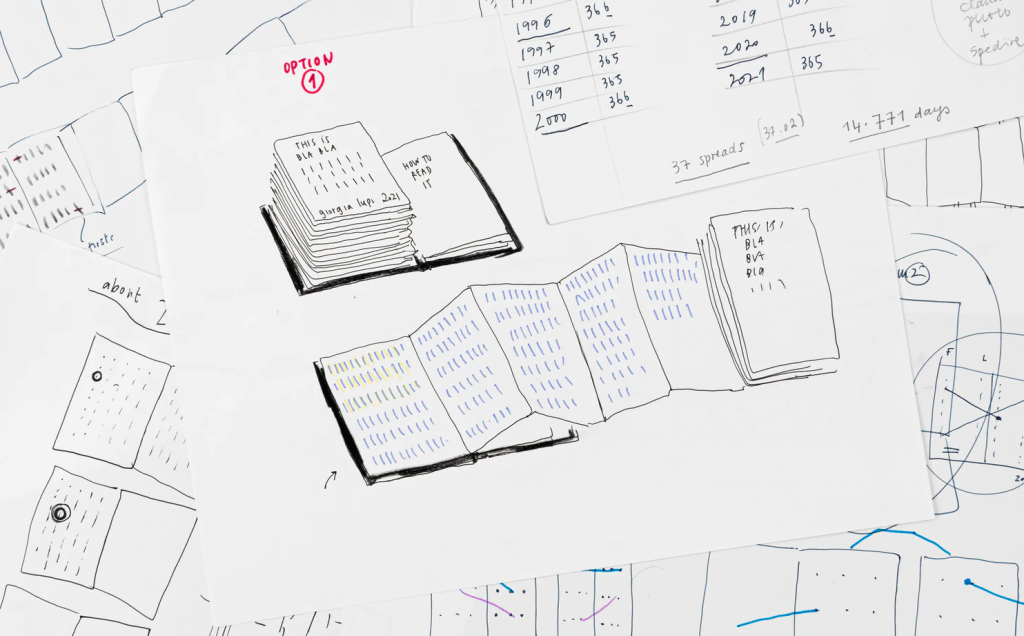 OPTION
1
THIS IS
BLA BLA
giorgia lupi 2021
HOW TO
READ
IT
THIS IS,
BLA
BLA
BLA
1996 366
1997 365
1998 365
1999 365
2000 366
2019 365
2020 366
2021 365
37 spreads (37.02)
14.771 days
about
F L